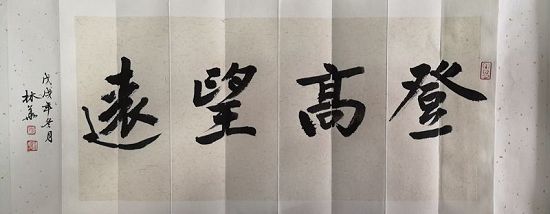 登高望遠
戊戌年冬月
林萍